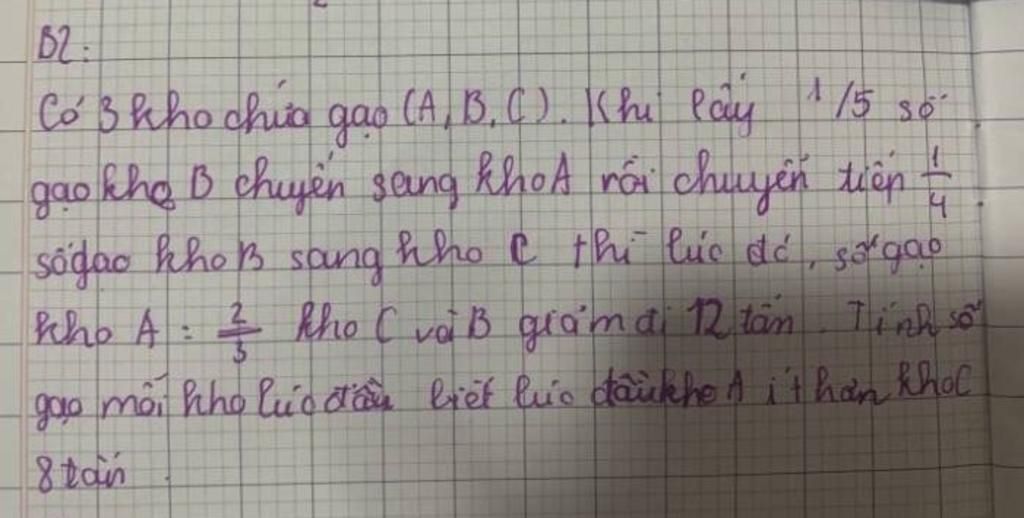 B2:
Có 3 kho chứa gạo (A, B, C). Khi lấy 1/5 số
gạo kho B chuyển sang kho A rồi chuyển tiếp 1/4
số gạo kho B sang kho C thì lúc đó, số gạo
kho A = 2/3 kho C và B giảm đi 12 tấn. Tính số
gạo mỗi kho lúc đầu biết lúc đầu kho A ít hơn kho C
8 tấn